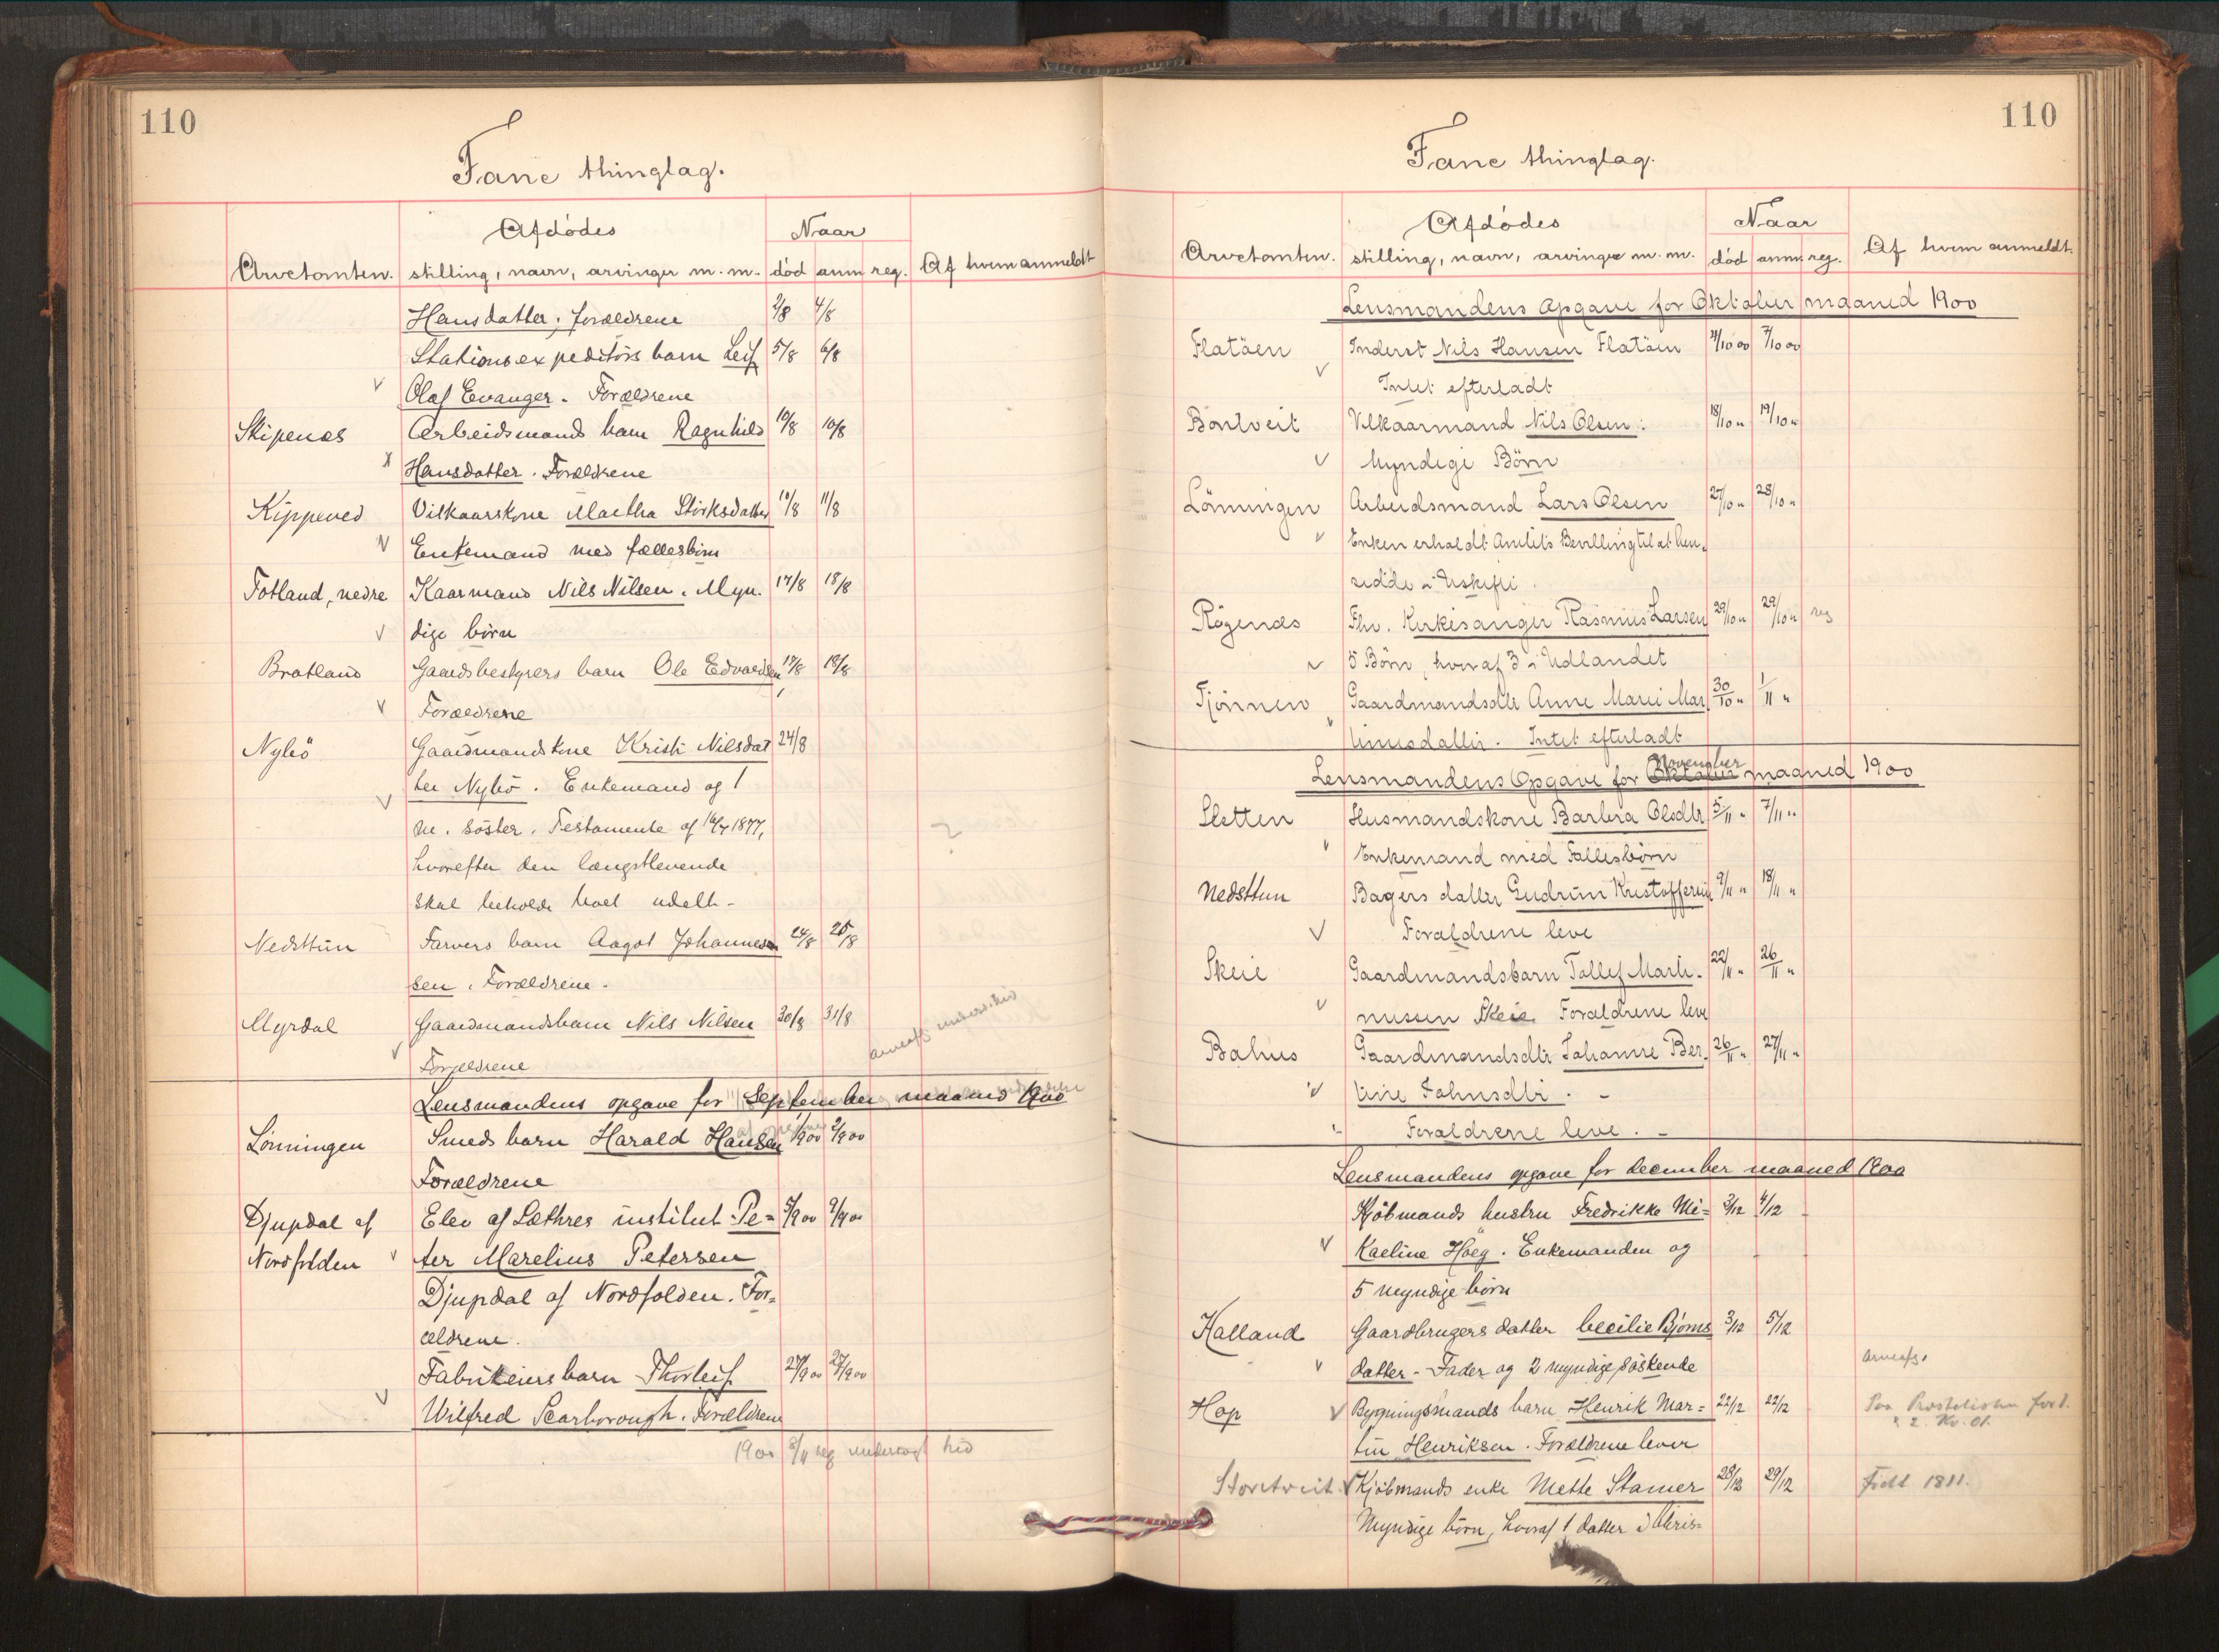 110
Fane thinglag.
Afdödes Naar
Arvetomten. stilling, navn, arvinger m. m. död anm reg. Af hvem anmeldt
Hansdatter. forældrene 2/8 4/8
Stationsexpeditörs barn Leif 5/8 6/8
Olaf Evanger. Forældrene
Skipenes Arbeidsmands barn Ragnhild 10/8 10/8
Hansdatter. Forældrene
Kippened Vilkaarskone Martha Störksdatter 10/8 11/8
Enkemand med fællesbörn
Totland, nedre Kaarmand Nils Nilsen. Myn- 17/8 18/8
dige börn
Bratland Gaardsbestyrers barn Ole Edvardsen 17/8 18/8
Forældrene
Nybö Gaardmandskone Kristi Nilsdat 24/8
ter Nybö. Enkemand og 1
m. söster. Testamente af 1877,
hvorefter den længstlevende
skal beholde boet udelt- ?
Nedsttun Farvers barn Aagot Johannes 24/8 25/8
sen. Forældrene.
Myrdal Gaardmandsbarn Nils Nilsen 30/8 31/8
Forældrene
Lensmandens opgave for September maaned 1900
Lönningen Smeds barn Harald Hansen 1/9 00 2/9 00
Forældrene
Djupdal af Elev af Læthres institut Pe= 5/9 00 9/9 00
Nordfolden ter Marelius Petersen
Djupdal af Nordfolden. For=
ældrene.
Fabrikeiers barn Thorleif 27/9 00 27/9 00
Wilfred Scarborough. Forældrene
1900 3/11 reg undersögt hid
110
Fane thinglag.
Afdödes Naar
Arvetomten. stilling, navn, arvinger m. m. död anm. reg. Af hvem anmeldt.
Lensmandens Opgave for Oktober maaned 1900
Flatöen Inderst Nils Hansen Flatöen 4/10 00 7/10 00
Intet efterladt
Bontveit Vilkaarmand Nils Olsen: 18/10 " 19/10 "
Myndige Börn
Lönningen Arbeidsmand Lars Olsen 27/10 " 28/10 "
Enken erholdt Amtets Bevilling til at hen-
sidde i Uskifte.
Rögenes Fhv. Kirkesanger Rasmus Larsen 29/10 " 29/10 " reg
5 Börn, hvoraf 3 i Udlandet
Tjönnen Gaardmandsdtr Anne Marie Mar 30/10 " 1/11 "
tinusdatter. Intet efterladt
November
Lensmandens Opgave for Oktober maaned 1900
Sletten Husmandskone Barbra Olsdtr 5/11 " 7/11 "
Enkemand med Fællesbörn
Nedsttun Bagers datter Gudrun Kristoffersen 9/11 " 18/11 "
Forældrene leve
Skeie Gaardmandsbarn Tollef Marti- 22/11 " 26/11 "
nussen Skeie Forældrene leve
Bahus Gaardmandsdtr Johanne Ber- 26/11 " 27/11 "
tine Johnsdtr. -
Forældrene leve. -
Lensmandens opgave for december maaned 1900
Kjöbmands hustru Fredrikke Mi= 3/12 4/12
kaeline Höeg. Enkemanden og
5 myndige börn
Halland Gaardbrugers datter Cecilie Björns 3/12 5/12
datter. - Fader og 2 myndige söskende
Hop Bygningsmands barn Henrik Mar= 22/12 22/12
tin Henriksen. Forældrene lever
Storetveit. Kjöbmands enke Mette Stamer 28/12 29/12 Födt 1811.
Myndige börn, hvoraf 1 datter i Chris=